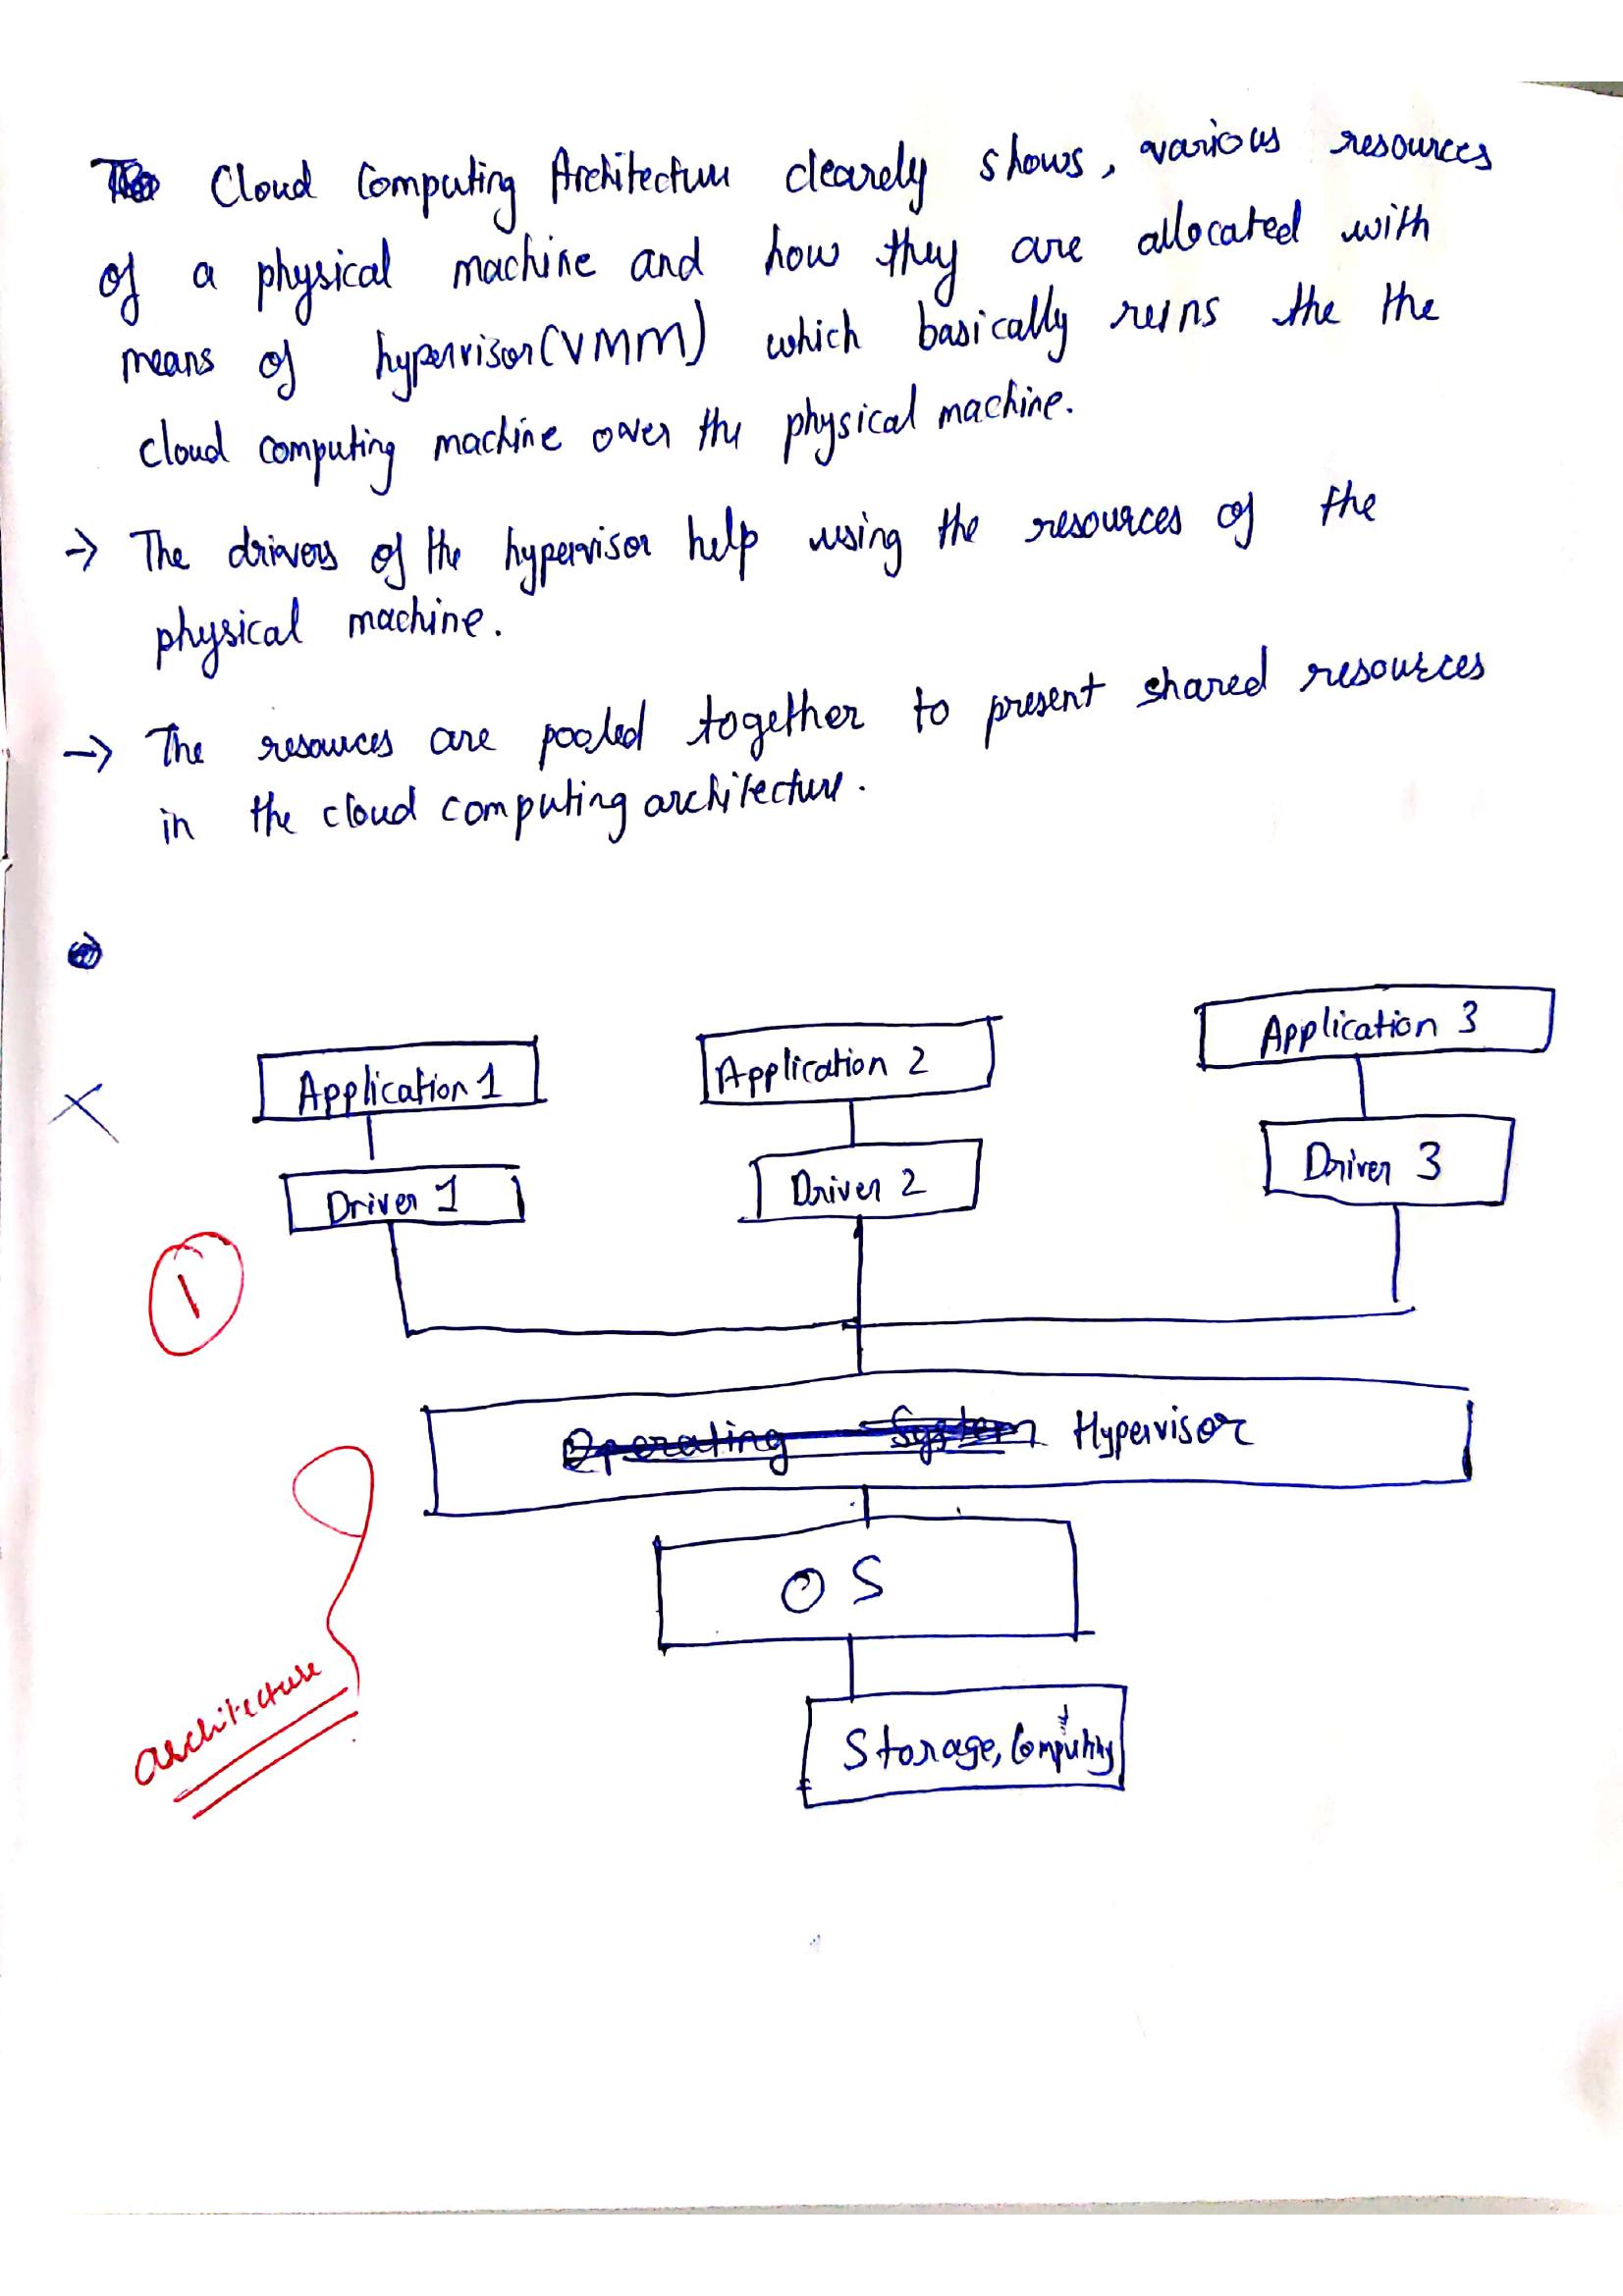 Cloud Computing Architecture clearely shows, various resources
of a physical machine and how they are allocated with
means of hypervisor(VMM) which basically runs the the
cloud computing machine over the physical machine.
→ The drivers of the hypervisor help using the resources of the
physical machine.
→ The resources are pooled together to present shared resources
in the cloud computing architecture.
Application 1
Application 2
Application 3
Driver 1
Driver 2
Driver 3
1
Operating System Hypervisor
OS
architecture
Storage, Computing